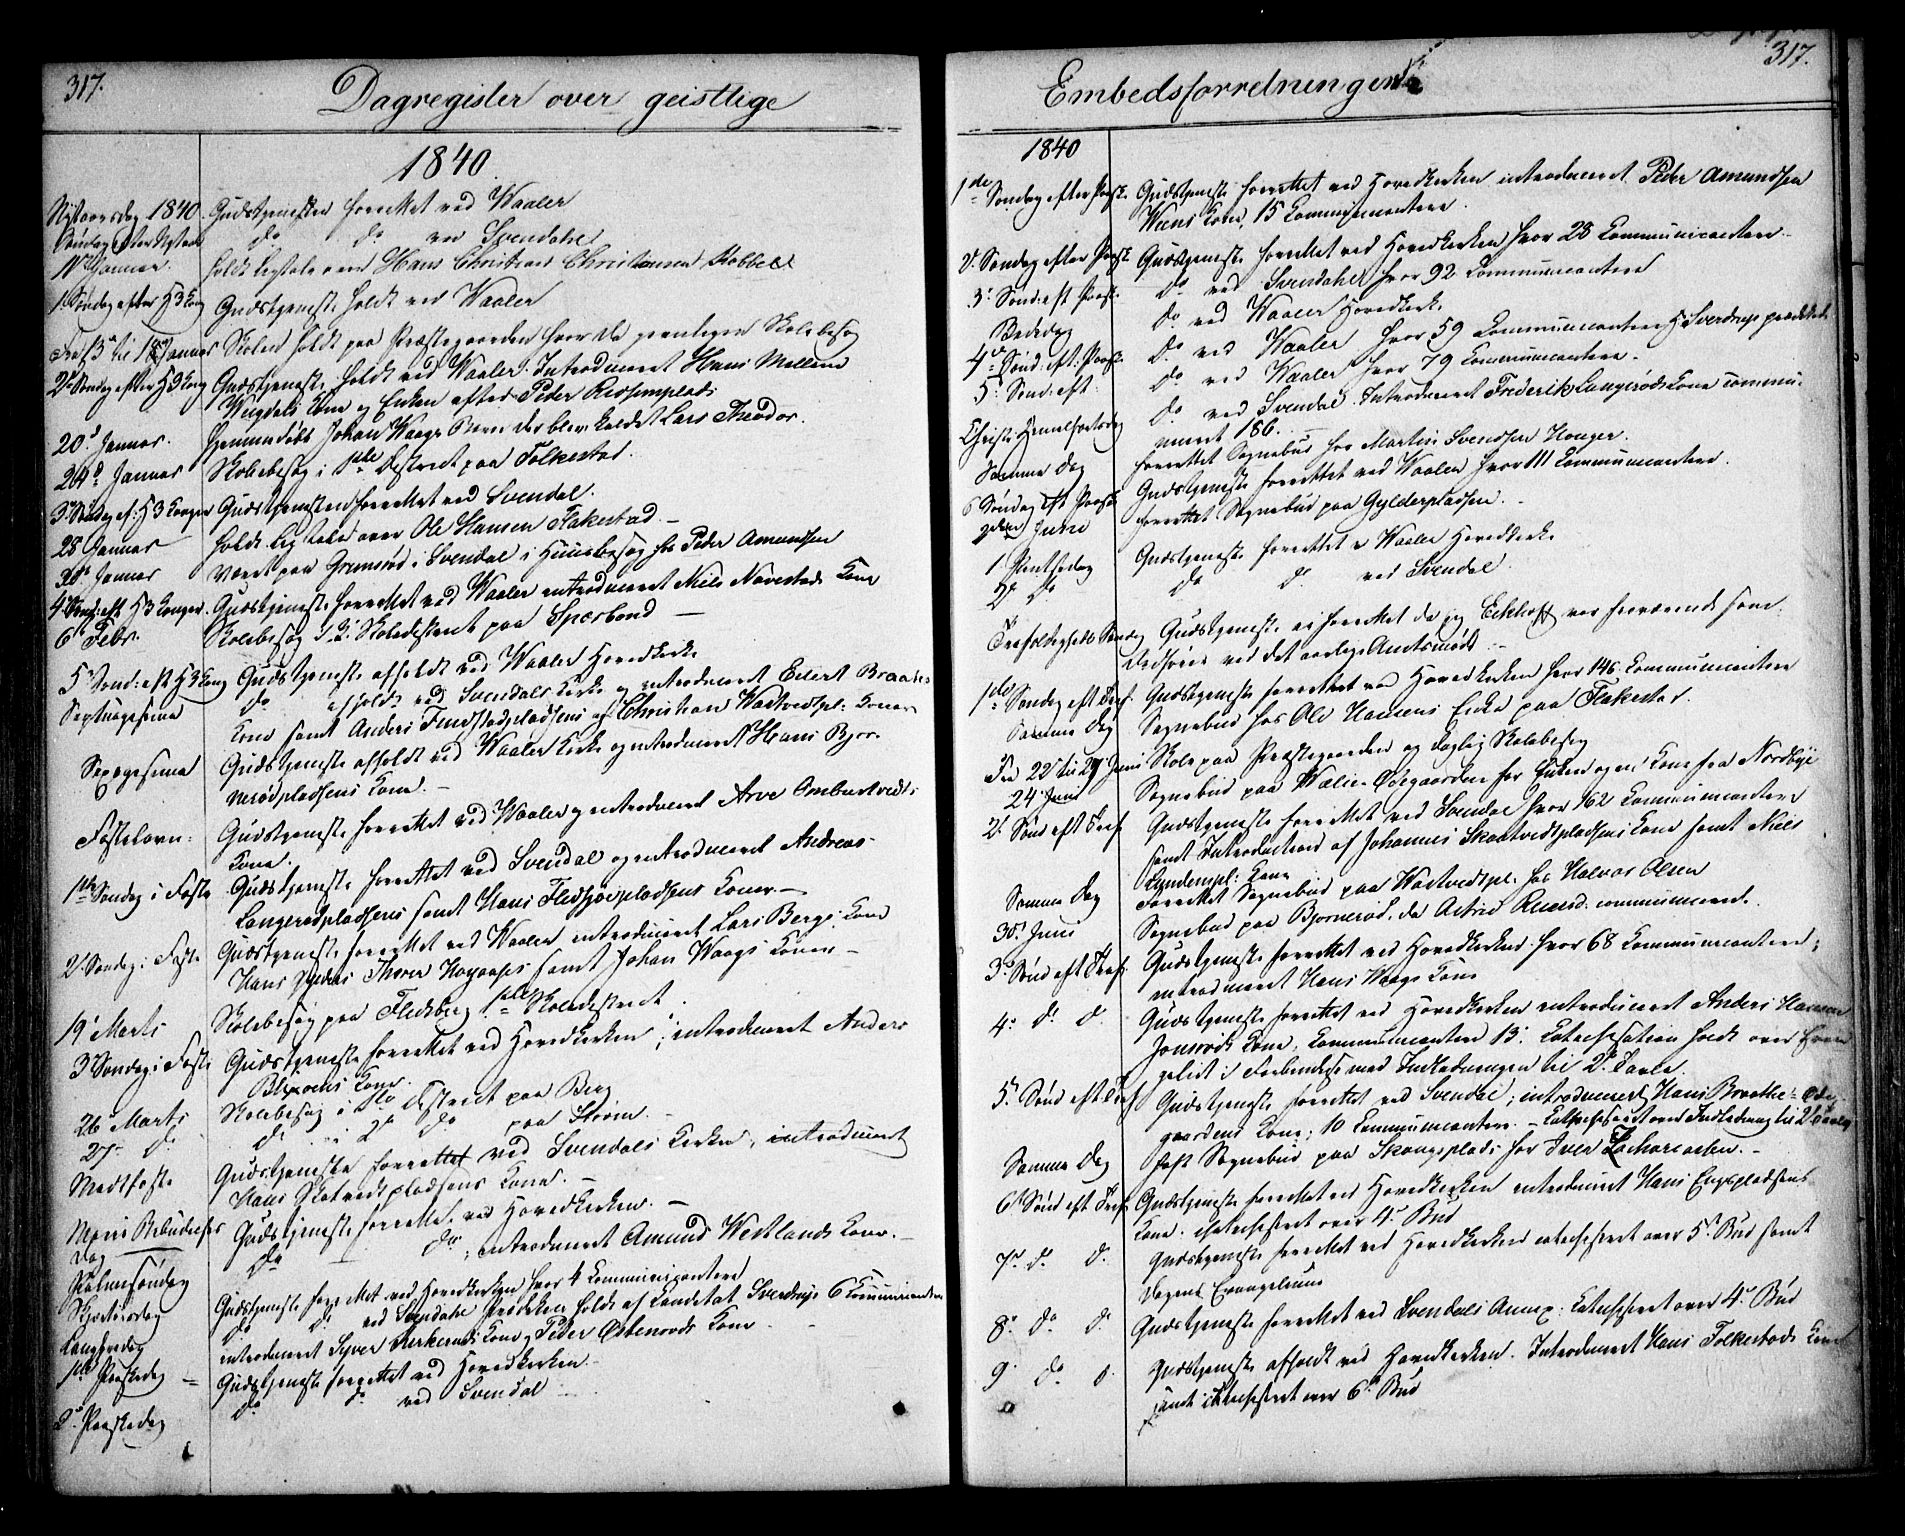 317.
Dagregister over geistlige
1840.
Nytaarsdag 1840. Gudstjenesten forrettet ved Waaler
Søndag efter Nytaar do do ved Svendahl
Januar. holdt Ligtale over Hans Christian Christensen Kobbel
1. Søndag efter H 3 Kong Gudstjeneste holdt ved Waaler
Fra 13 til Januar Skolen holdt paa Præstegaarden hvor da Skolebesøg
2 Søndag efter H 3 Kong Gudstjeneste holdt ved Waaler. Introduceret Hans Mellem
Kone og Enken efter Peder
20de Januar. hjemmedøbt Johan Waags Barn der blev kaldet Lars Theodor.
24de Januar Skolebesøg i 1ste District paa Folkestad.
3 Søndag ef: H 3 Konger Gudstjenesten forrettet ved Svendal.
28 Januar holdt Ligtale over Ole Hansen Flakestad. –
Januar Været paa Grimsrød i Svendal i Huusbesøg hos Peder Amundsen
4 Sønd: eft H 3 Konger. Gudstjeneste forrettet ved Waaler introduceret Niels Navestads Kone
6 Febr: Skolebesøg i 2 Skoledistrict paa Spærbond –
5 Sønd: eft H 3 Kong Gudstjeneste afholdt ved Waaler Hovedkirke
Septuagesima do afholdt ved Svendals Kirke og introduceret Eilert Braatens
Kone samt Anders Findstadpladsens og Christian Wartvedtpl: Koner
Sexagesima Gudstjeneste afholdt ved Waaler Kirke og introduceret Hans Bjor-
nerødpladsens Kone. –
Fastelavn: Gudstjeneste forrettet ved Waaler og introduceret Arve Ombustvedts
Kone.
1ste Søndag i Faste Gudstjeneste forrettet ved Svendal og introduceret Andreas
Langerødpladsens samt Hans Fledsjøepladsens Koner. –
2. Søndag i Faste Gudstjeneste forrettet ved Waaler, introduceret Lars Bergs Kone
Hans Thover samt Johan Waags Koner –
19 Marts Skolebesøg paa Fledsberg 1ste Skoledistrict.
3 Søndag i Faste Gudstjeneste forrettet ved Hovedkirken; introduceret Anders
Kone.
26 Marts Skolebesøg i 1ste District paa Berg
27– do. do i 2d do paa Strøm. –
Medfaste Gudstjeneste forrettet ved Svendals Kirke, introduceret
Hans Skotvedtpladsens Kone. –
Mariæ Bebudelses Gudstjeneste forrettet ved Hovedkirken. –
Dag
Palmesøndag do do; introduceret Amund Westlands Kone. –
Skjertorsdag Gudstjeneste forrettet ved Hovedkirken hvor 4 Kommunicantere
Langfredag do do ved Svendahl Prædiken holdt af Candidat Sverdrup 6 Kommunicantere
introduceret Syver Kirkerøds Kone og Peder Østenrøds Kone
1ste Paaskedag – Gudstjeneste forrettet ved Hovedkirken –
2 Paaskedag do do ved Svendal –
317.
Embedsforretninger
1840
1de Søndag efter Paaske Gudstjeneste forrettet ved Hovedkirken introduceret Peder Amundsen
Kone, 15 Kommunicantere.
2. Søndag efter Paaske Gudstjeneste forrettet ved Hovedkirken hvor 28 Kommunicantere –
3 Sønd: eft Paaske. do ved Svendahl hvor 92 Kommunicantere
Bededag do ved Waaler Hovedkirke
4 Sønd: eft. Paaske do ved Waaler hvor 59 Kommunicantere H. Sverdrup prædikede
5 Sønd: eft: do ved Waaler hvor 79 Kommunicantere. –
Christi Himmelfartsdag do ved Svendal. Introduceret Frederik Langerøds Kone Commu-
niceret 186. –
Samme Dag forrettet Sognebud hos Martin Svendsen Honger.
6 Søndag eft Paaske Gudstjeneste forrettet ved Waaler hvor 111 Kommunicantere.
Juni forrettet Sognebud paa Gylderpladsen. –
1 Pintsedag Gudstjeneste forrettet v Waaler Hovedkirke
2 do do do ved Svendal.
Trefoldigheds Søndag Gudstjeneste ei forrettet da jeg Eckhoff var fraværende som
ved det aarlige Amtsmøde. –
1ste Søndag eft Tref. Gudstjeneste forrettet ved Hovedkirken hvor 146 Kommunicantere
Samme Dag Sognebud hos Ole Hansens Enke paa Flakestad.
Fra 22 til 27 Juni Skole paa Præstegaarden og daglig Skolebesøg
24 Juni Sognebud paa Wælie Ødegaarden for Enken og en Kone fra Nordbye
2. Sønd eft Tref Gudstjeneste forrettet ved Svendal hvor 162 Kommunicantere
samt Introduction af Johannes Skartvedtpladsens Kone samt Niels
Lundempl: Kone
Samme Dag forrettet Sognebud paa Wartvedtpl. hos Halvor Olsen
30. Juni Sognebud paa Bjørnerød, da Astrid communiceret.
3 Sønd eft Tref. Gudstjeneste forrettet ved Hovedkirken hvor 68 Kommunicantere;
introduceret Hans Waags Kone
4. do do. Gudstjeneste forrettet ved Hovedkirken introduceret Anders Hansen
Jonsrøds Kone, Kommunicantere 13. Catechisation holdt over Evan-
geliet i Forbindelse med Indledningen til 2. Tavle.
5. Sønd eft Tref Gudstjeneste forrettet ved Svendal; introduceret Hans Braathe-Øde-
gaardens Kone; 10 Kommunicantere. – Catechiseret over Indledning til 2 Tavle
Samme Dag havt Sognebud paa Skougsplads hos Iver Zachariasen. –
6 Sønd eft Tref. Gudstjeneste forrettet ved Hovedkirken introduceret Hans Engspladsens
Kone. catechiseret over 4. Bud
7. do. do. Gudstjeneste forrettet ved Hovedkirken catechiseret over 5. Bud samt
Dagens Evangelium
8. do. do Gudstjeneste forrettet ved Svendals Annex: Catechiseret over 4. Bud
9. do. do. Gudstjeneste afholdt ved Hovedkirken. Introduceret Hans Folkestads Kone
samt catechiseret over 6 Bud